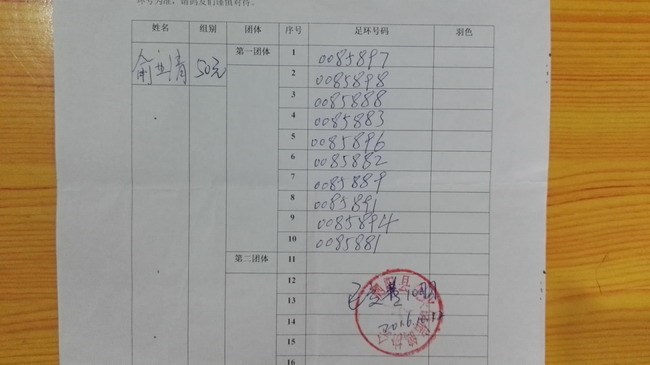 环号为准，请鸽友们谨慎对待。
姓名 组别 团体 序号 足环号码 羽色
俞 清 50元 第一团体 1 0085897
2 0085898
3 0085888
4 0085883
5 0085896
6 0085882
7 0085889
8 0085891
9 0085894
10 0085881
第二团体 11
12
13
14
15
16